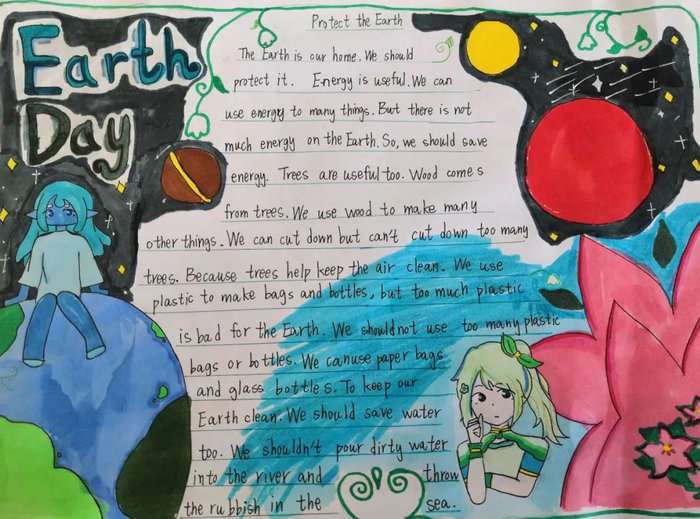 Earth
Day
Protect the Earth
The Earth is our home. We should
protect it. Energy is useful. We can
use energy to many things. But there is not
much energy on the Earth. So, we should save
energy. Trees are useful too. Wood comes
from trees. We use wood to make many
other things. We can cut down but can't cut down too many
trees. Because trees help keep the air clean. We use
plastic to make bags and bottles, but too much plastic
is bad for the Earth. We should not use too many plastic
bags or bottles. We can use paper bags
and glass bottles. To keep our
Earth clean. We should save water
too. We shouldn't pour dirty water
into the river and throw
the rubbish in the sea.